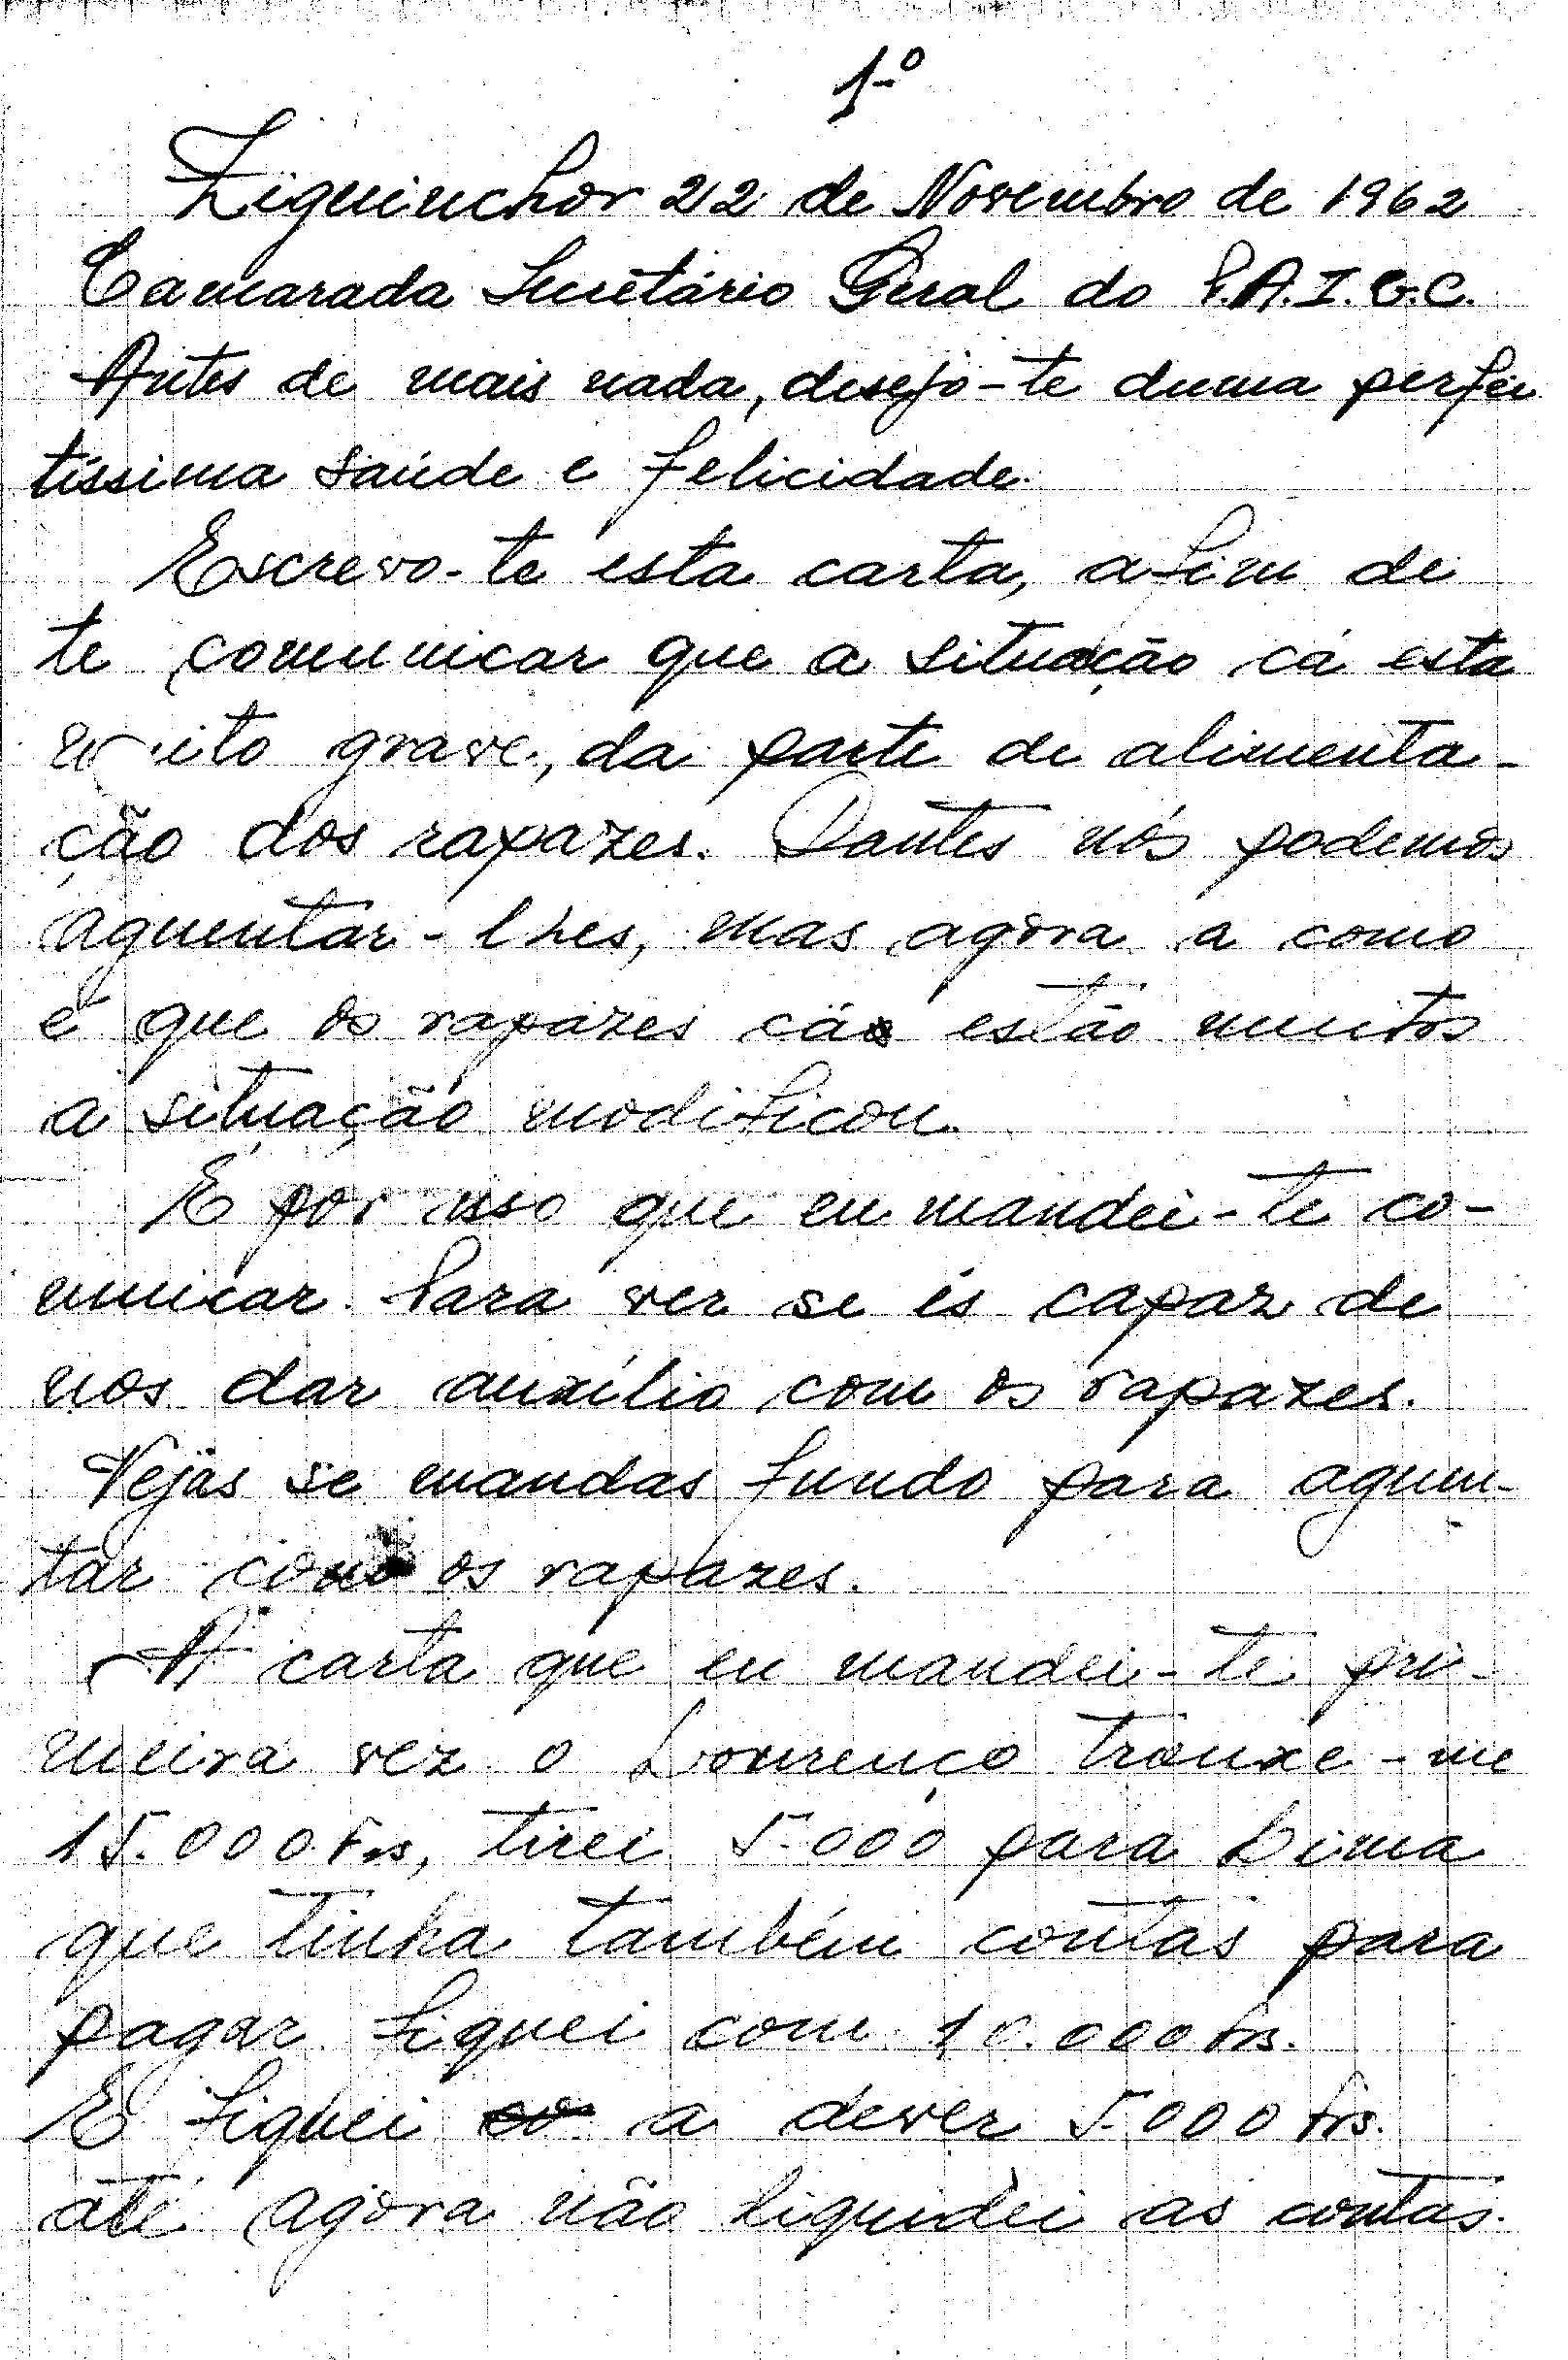 1-º
Ziguinchor 22 de Novembro de 1962
Camarada Secretário Geral do P.A.I.G.C.
Antes de mais nada, desejo-te duma perfei
tíssima saúde e felicidade.
Escrevo-te esta carta, afim de
te comunicar que a situação cá esta
muito grave, da parte de alimenta-
ção dos rapazes. Dantes nós podemos
aguentar-lhes, mas agora a como
é que os rapazes cá estão muitos
a situação modificou.
E por isso que eu mandei-te co-
municar. Para ver se és capaz de
nos dar auxílio com os rapazes.
Vejas se mandas fundo para aguen-
tar com os rapazes.
A carta que eu mandei-te pri-
meira vez o Lourenço trouxe-me
15.000 Frs, tirei 5.000 para Bima
que tinha também contas para
pagar. Fiquei com 10.000 frs.
E fiquei a dever 5.000 frs.
até agora não liquidei as contas.